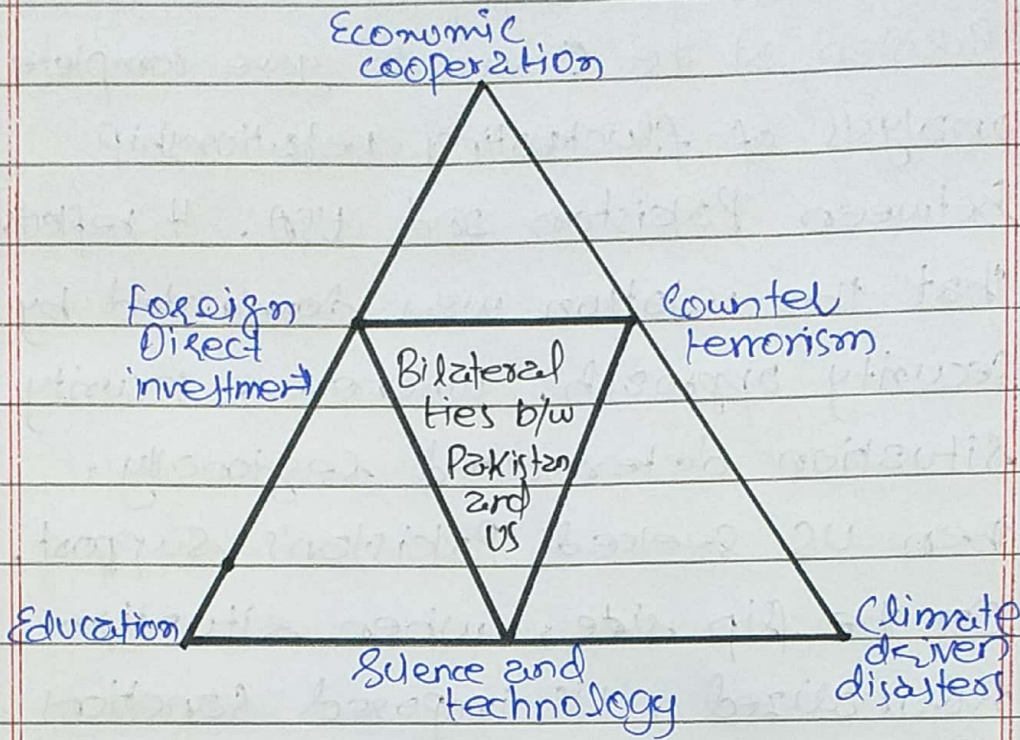 Economic
cooperation
Foreign
Direct
investment
Counter
terrorism
Bilateral
ties b/w
Pakistan
and
US
Education
Science and
technology
Climate
driven
disasters